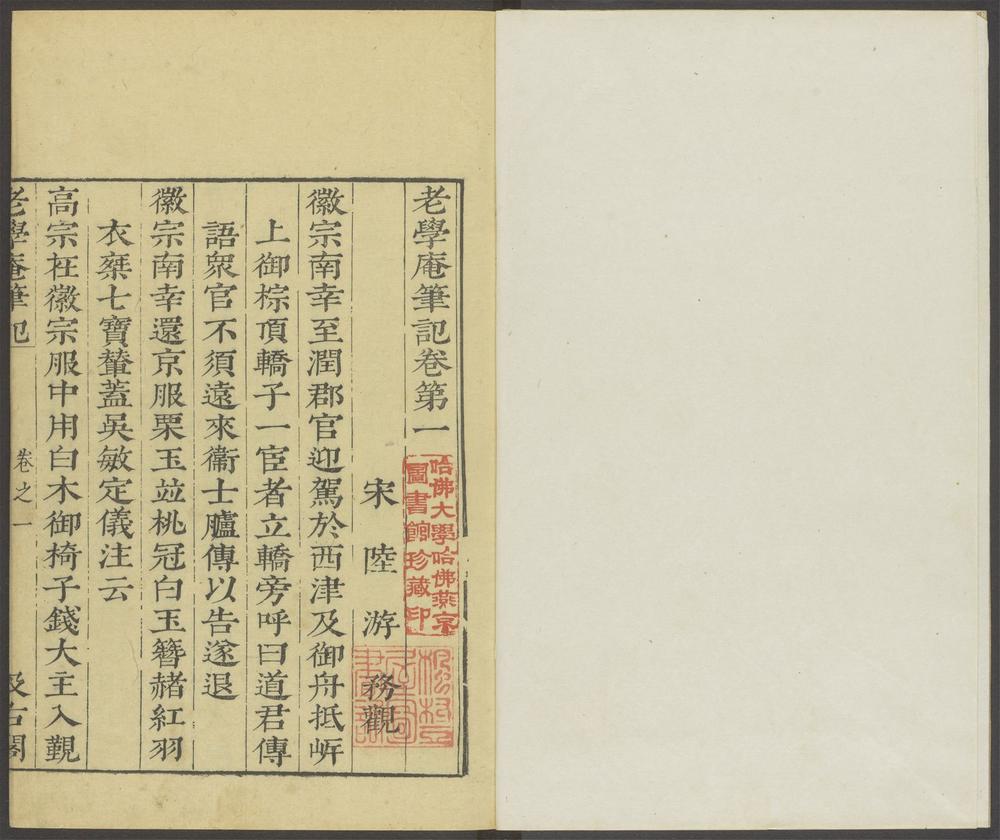 老學庵筆記卷第一
宋 陸 游 務觀
徽宗南幸至潤郡官迎駕於西津及御舟抵岍
上御棕頂轎子一宦者立轎旁呼曰道君傳
語衆官不須遠來衞士臚傳以告遂退
徽宗南幸還京服栗玉竝桃冠白玉簪赭紅羽
衣椉七寶輦蓋吳敏定儀注云
高宗在徽宗服中用白木御椅子錢大主入覲
老學庵筆記 卷之一 汲古閣
哈佛大學哈佛燕京
圖書館珍藏印